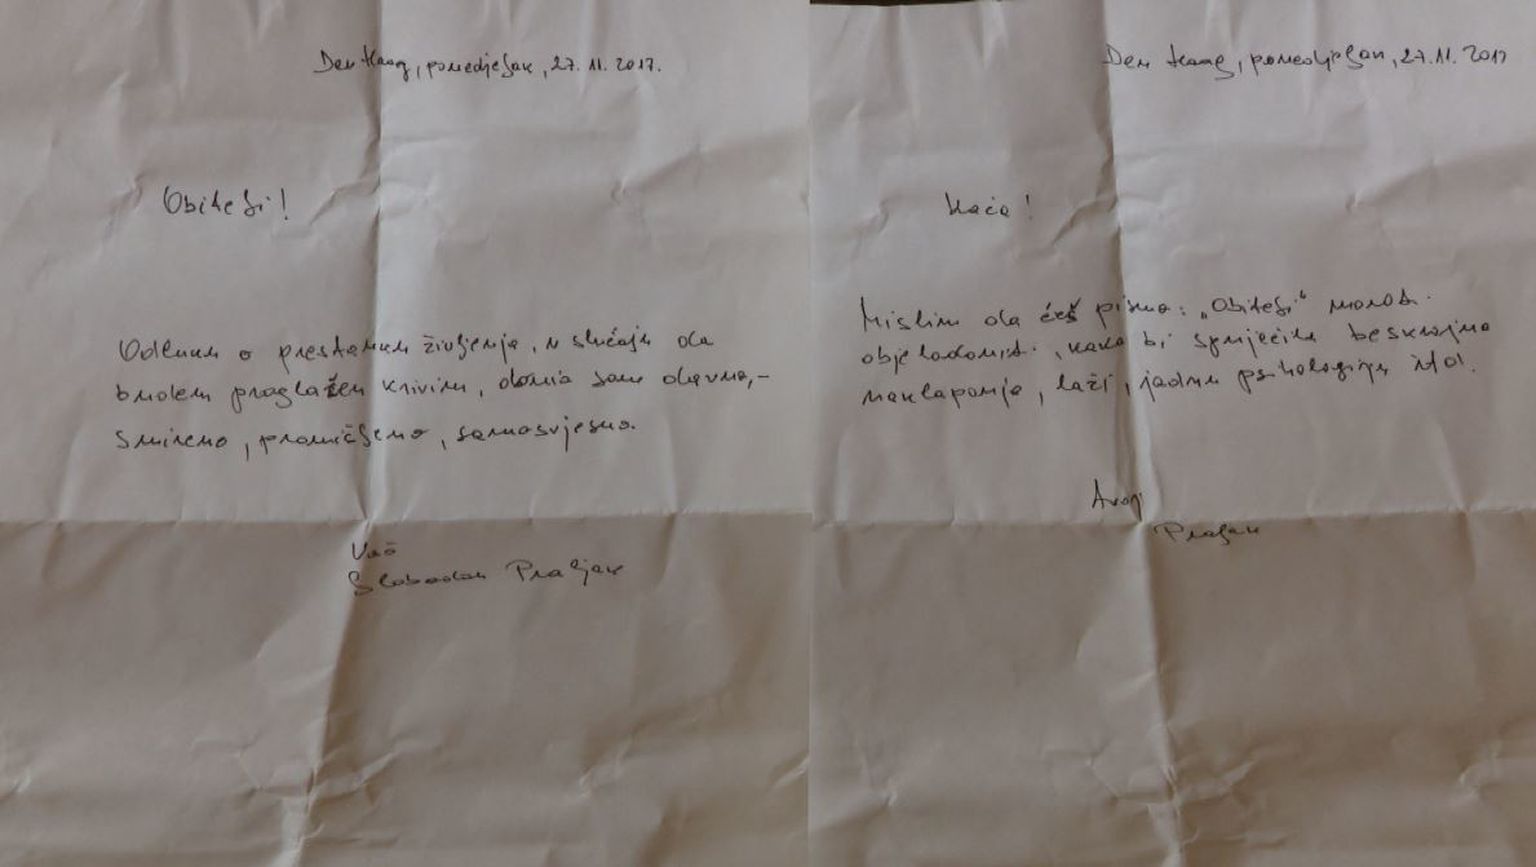 Den Haag, ponedjeljak, 27. 11. 2017.
Obitelji!
Odluku o prestanku življenja, u slučaju da
budem proglašen krivim, donio sam davno, –
smireno, promišljeno, samosvjesno.
Vaš
Slobodan Praljak
Den Haag, ponedjeljak, 27. 11. 2017
Kaća!
Mislim da ćeš pismo: „Obitelji“ morati
objelodaniti, kako bi spriječila beskrajna
naklapanja, laži, jadnu psihologiju itd.
Tvoj
Praljak